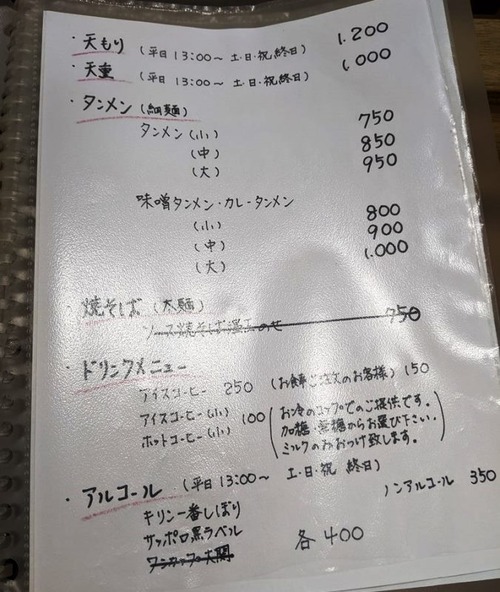 ・天もり (平日 13:00〜 土・日・祝終日) 1.200
・天重 (平日 13:00〜 土・日・祝終日) 1.000
・タンメン (細麺)
タンメン(小) 750
(中) 850
(大) 950
味噌タンメン・カレータンメン
(小) 800
(中) 900
(大) 1.000
・焼そば (太麺)
ソース焼そば温玉のせ 750
・ドリンクメニュー
アイスコーヒー 250 (お食事ご注文のお客様) 150
アイスコーヒー(小) 100
ホットコーヒー(小)
お冷のコップでのご提供です。
加糖・無糖からお選び下さい。
ミルクのみおつけ致します。
・アルコール (平日 13:00〜 土・日・祝 終日)
キリン一番しぼり ノンアルコール 350
サッポロ黒ラベル 各400
ワンカップ大関